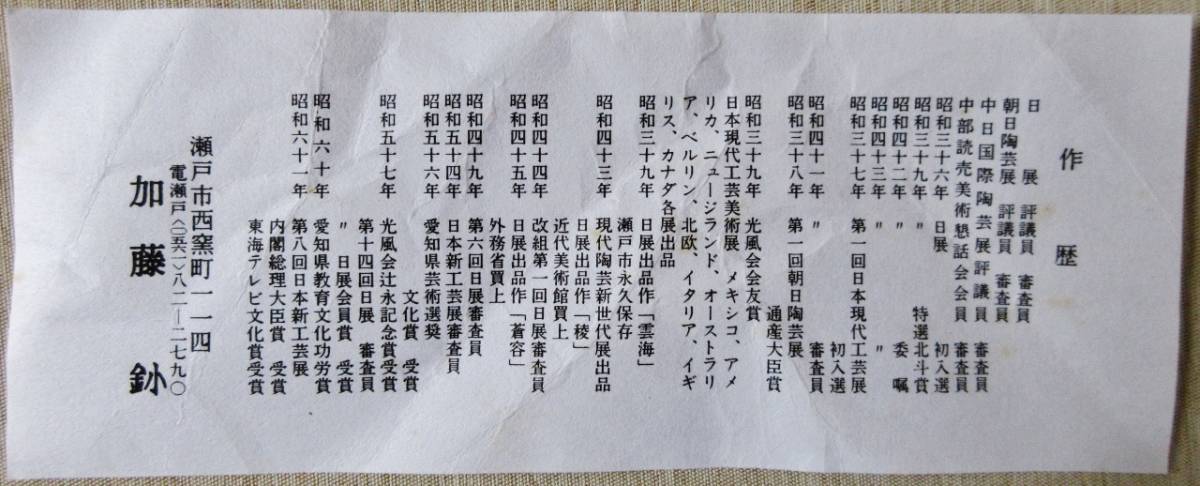 作歴
日展 評議員 審査員
朝日陶芸展 評議員 審査員
中日国際陶芸展評議員 審査員
中部読売美術懇話会会員 審査員
昭和三十六年 日展 初入選
昭和三十九年 〃 特選北斗賞
昭和四十二年 〃 委嘱
昭和四十三年 〃 〃
昭和三十七年 第一回日本現代工芸展
初入選
昭和四十一年 〃 審査員
昭和三十八年 第一回朝日陶芸展
通産大臣賞
昭和三十九年 光風会会友賞
日本現代工芸美術展、メキシコ、アメ
リカ、ニュージランド、オーストラリ
ア、ベルリン、北欧、イタリア、イギ
リス、カナダ各展出品
昭和三十九年 日展出品作「雲海」
瀬戸市永久保存
昭和四十三年 現代陶芸新世代展出品
日展出品作「稜」
近代美術館買上
昭和四十四年 改組第一回日展審査員
昭和四十五年 日展出品作「蒼容」
外務省買上
昭和四十九年 第六回日展審査員
昭和五十四年 日本新工芸展審査員
昭和五十六年 愛知県芸術選奨
文化賞 受賞
昭和五十七年 光風会辻永記念賞受賞
第十四回日展 審査員
〃 日展会員賞 受賞
昭和六十年 愛知県教育文化功労賞
昭和六十一年 第八回日本新工芸展
内閣総理大臣賞 受賞
東海テレビ文化賞受賞
瀬戸市西窯町一一四
電瀬戸〈〇五六一〉八二―二七九〇
加藤釥